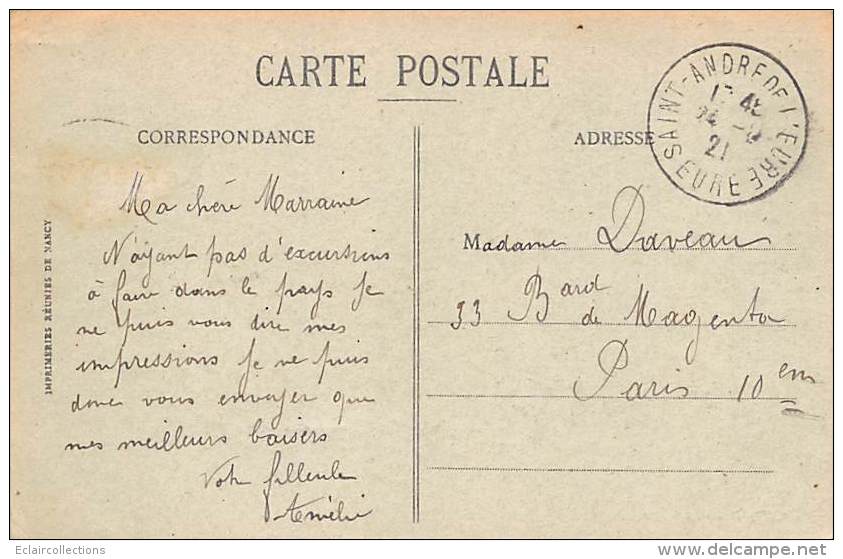 CARTE POSTALE
CORRESPONDANCE
ADRESSE
SAINT-ANDRE DE L'EURE
EURE
21
Ma chère Marraine
N'ayant pas d'excursions
à faire dans le pays je
ne puis vous dire mes
impressions je ne puis
donc vous envoyer que
mes meilleurs baisers
Votre filleule
Amélie
Madame Daveau
33 Bard
de Magenta
Paris 10 em
IMPRIMERIES RÉUNIES DE NANCY
Eclaircollections
www.delcampe.net